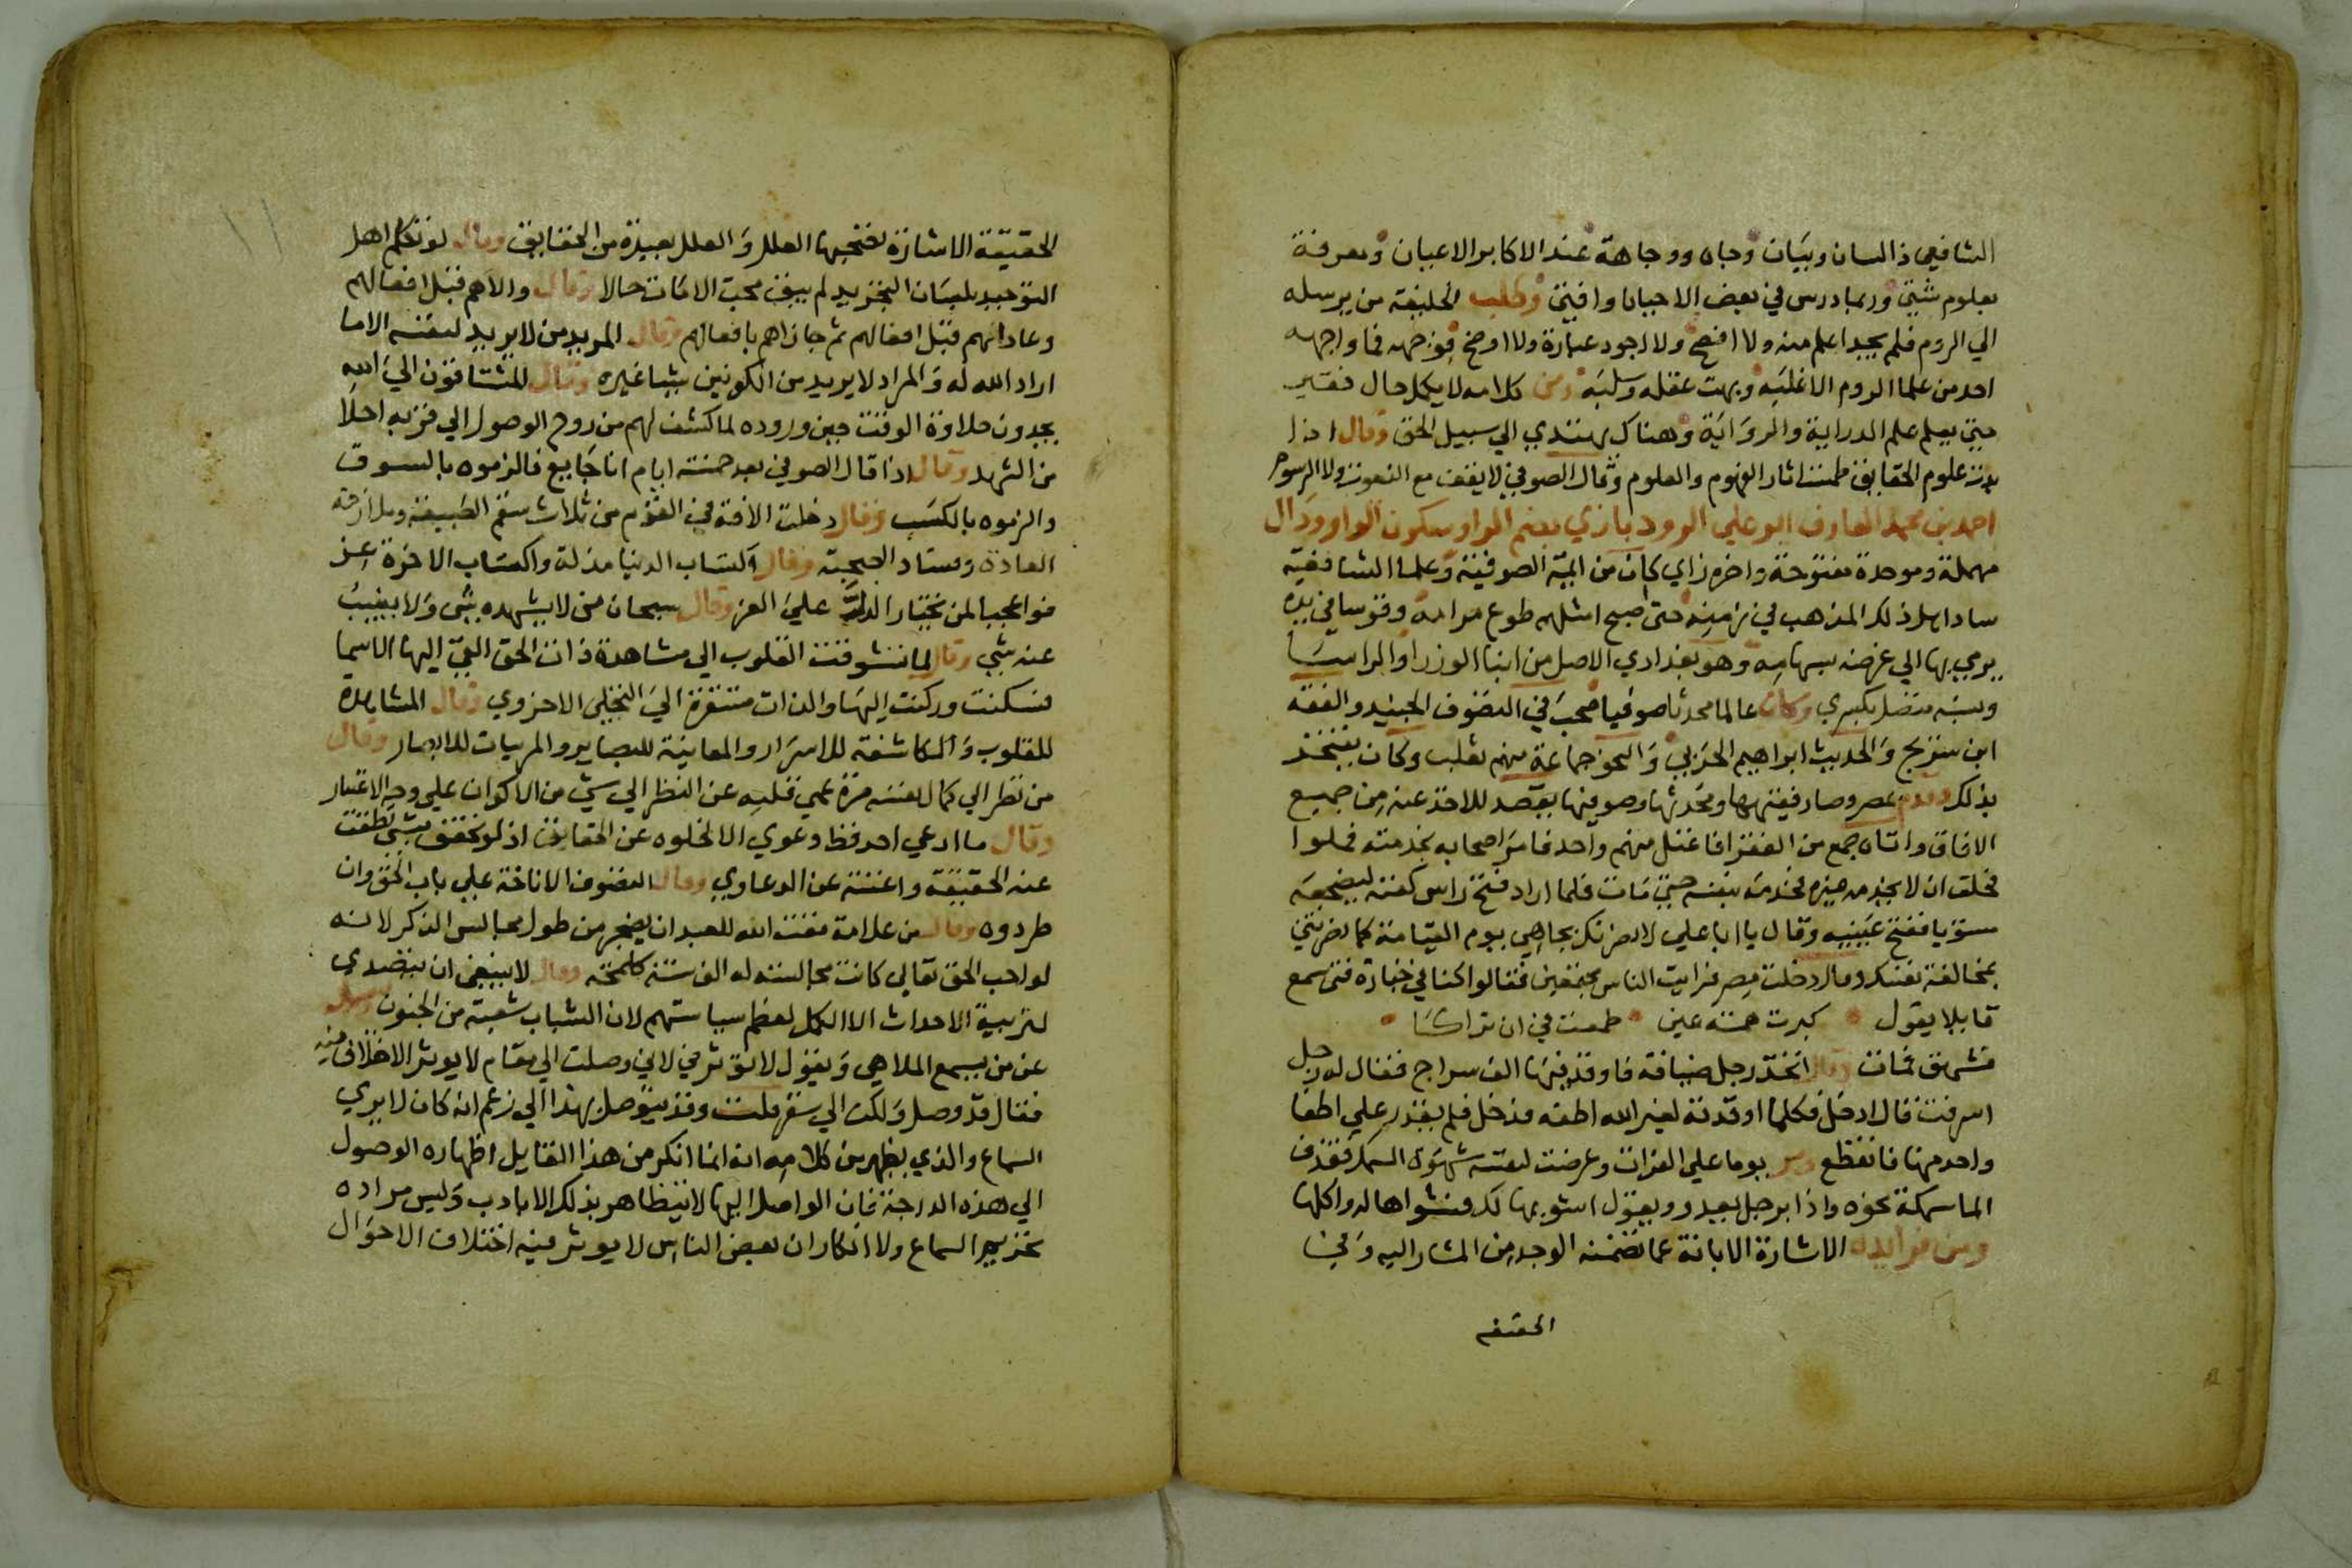 الشافعي ذا لسان وبيان وجاه ووجاهة عند الاكابر الاعيان ومعرفة
بعلوم شتي وربما درس في بعض الاحيان وافتي وطلب الخليفة من يرسله
الي الروم فلم يجد اعلم منه ولا افصح ولا اجود عبارة ولا اوضح فوجهه فما واجهه
احد من علما الروم الا غلبه وبهت عقله وسلبه ومن كلامه لا يكمل حال فقير
حتي يعلم علم الدراية والرواية وهناك يهتدي الي سبيل الحق وقال اذا
بدت علوم الحقايق طمست اثار الفهوم والعلوم وقال الصوفي لا يقف مع النعوت ولا الرسوم
احمد بن محمد العارف ابو علي الرودباري بضم الرا وسكون الواو ودال
مهملة وموحدة مفتوحة واخره زاي كان من ايمة الصوفية وعلما الشافعية
ساد اهل ذلك المذهب في زمنه حتى اصبح امثلهم طوع مرامه وقوسا في يده
يرمي بها الي غرضه بسهامه وهو بغدادي الاصل من ابنا الوزرا والراسا
ونسبه متصل بكسري وكان عالما محدثا صوفيا صحب في التصوف الجنيد والفقه
ابن سريج والحديث ابراهيم الحربي والنحو جماعة منهم ثعلب وكان يفتخر
بذلك وقدم مصر وصار فقيهها ومحدثها وصوفيها يقصد للاخذ عنه من جميع
الافاق واتاه جمع من الفقرا فاعتل منهم واحد فامر اصحابه بخدمته فملوا
فحلف ان لا يخدمه غيره فخدمه بنفسه حتي مات فلما اراد فتح راس كفنه ليضجعه
سويا ففتح عينيه وقال يا ابا علي لانصرنك بجاهي يوم القيامة كما نصرتني
بمخالفة نفسك وقال دخلت مصر فرايت الناس مجتمعين فقالوا كنا في جنازة فتى سمع
قايلا يقول كبرت همة عين طمعت في ان تراكا
فشهق فمات وقال اتخذ رجل ضيافة فاوقد فيها الف سراج فقال له رجل
اسرفت قال ادخل فكلما اوقدته لغير الله اطفه فدخل فلم يقدر علي اطفا
واحد منها فانقطع ومر يوما علي الفرات وعرضت لنفسه شهوة السمك فقذف
الما سمكة نحوه واذا برجل يعدو ويقول اشويها لك فشواها له واكلها
ومن فوايده الاشارة الابانة عما تضمنه الوجد من المشار اليه وفي
الحقيقة
الحقيقة الاشارة تصحبها العلل والعلل بعيدة من الحقايق وقال لو تكلم اهل
التوحيد بلسان التجريد لم يبق محب الا مات حالا وقال والاهم قبل افعالهم
وعاداهم قبل افعالهم ثم جازاهم بافعالهم وقال المريد من لا يريد لنفسه الا ما
اراد الله له والمراد لا يريد من الكونين شيا غيره وقال المشتاقون الي الله
يجدون حلاوة الوقت حين وروده لما كشف لهم من روح الوصول الي قربه احلا
من الشهد وقال اذا قال الصوفي بعد خمسة ايام انا جايع فالزموه بالسوق
والزموه بالكسب وقال دخلت الافة في القوم من ثلاث سقم الطبيعة وملازمة
العادة وفساد الصحبة وقال اكتساب الدنيا مذلة واكتساب الاخرة عز
فواعجبا لمن يختار الذلة علي العز وقال سبحان من لا يشهده شي ولا يغيب
عنه شي وقال لما تشوقت القلوب الي مشاهدة ذات الحق القي اليها الاسما
فسكنت وركنت اليها والذات متنقرة الي التجلي الاخروي وقال المشاهدة
للقلوب والمكاشفة للاسرار والمعاينة للبصاير والمرييات للابصار وقال
من نظر الي كمال نفسه مرة عمي قلبه عن النظر الي شي من الاكوان علي وجه الاعتبار
وقال ما ادعي احد قط دعوي الا لخلوه عن الحقايق اذ لو تحقق بشي نطقت
عنه الحقيقة واغنته عن الدعاوي وقال التصوف الاناخة علي باب الحق وان
طردوه وقال من علامة مقت الله للعبد ان يضجر من طول مجالس الذكر لانه
لو احب الحق تعالي كانت مجالسته له الف سنة كلمحة وقال لا ينبغي ان يتصدي
لتربية الاحداث الا الكمل لعظم سياستهم لان الشباب شعبة من الجنون وسيل
عن من يسمع الملاهي ويقول لا توثر في لاني وصلت الي مقام لا يوثر الاختلاف فيه
فقال قد وصل ولكن الي سقر قلت وقد يتوصل بهذا الي زعم انه كان لا يري
السماع والذي يظهر من كلامه انه انما انكر من هذا القايل اظهاره الوصول
الي هذه الدرجة فان الواصل اليها لا يتظاهر بذلك الا بادب وليس مراده
تحريم السماع ولا انكار ان بعض الناس لا يوثر فيه اختلاف الاحوال